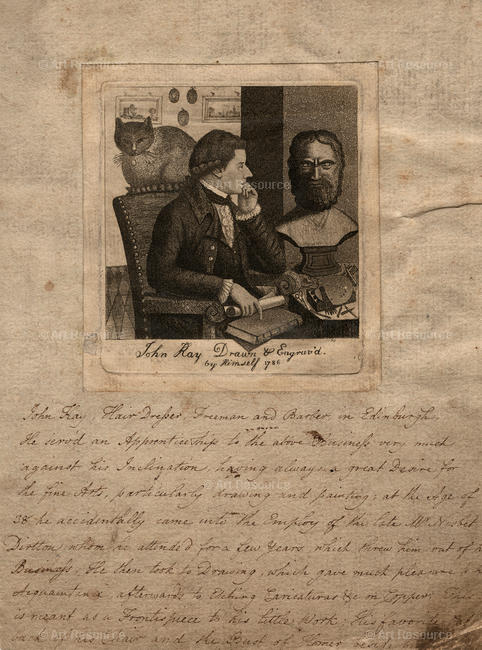 John Kay Drawn & Engrav'd.
by Himself 1786
John Kay, Hair Dresser, Freeman and Barber, in Edinburgh,
He serv'd an Apprenticeship to the above Business very much
against his Inclination, having always a great Desire for
the fine Arts, particularly drawing and painting; at the Age of
38 he accidentally came into the Employ of the late Mr. Nisbet
Dirtton, whom he attended for a few Years, which threw him out of
Business; He then took to Drawing, which gave much pleasure
Acquaintance afterwards to Etching Caricatures &c on Copper; This
is meant as a Frontispiece to his little Work; His favorite
back of his Chair and the Bust of Homer
© Art Resource